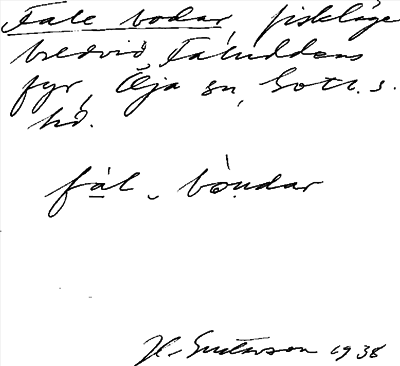 Fale bodar, fiskläge
bredvid Faluddens
fyr, Öja sn, Gotl. s.
hd.
fàl ˬ bòndar
H. Gustavson 1938